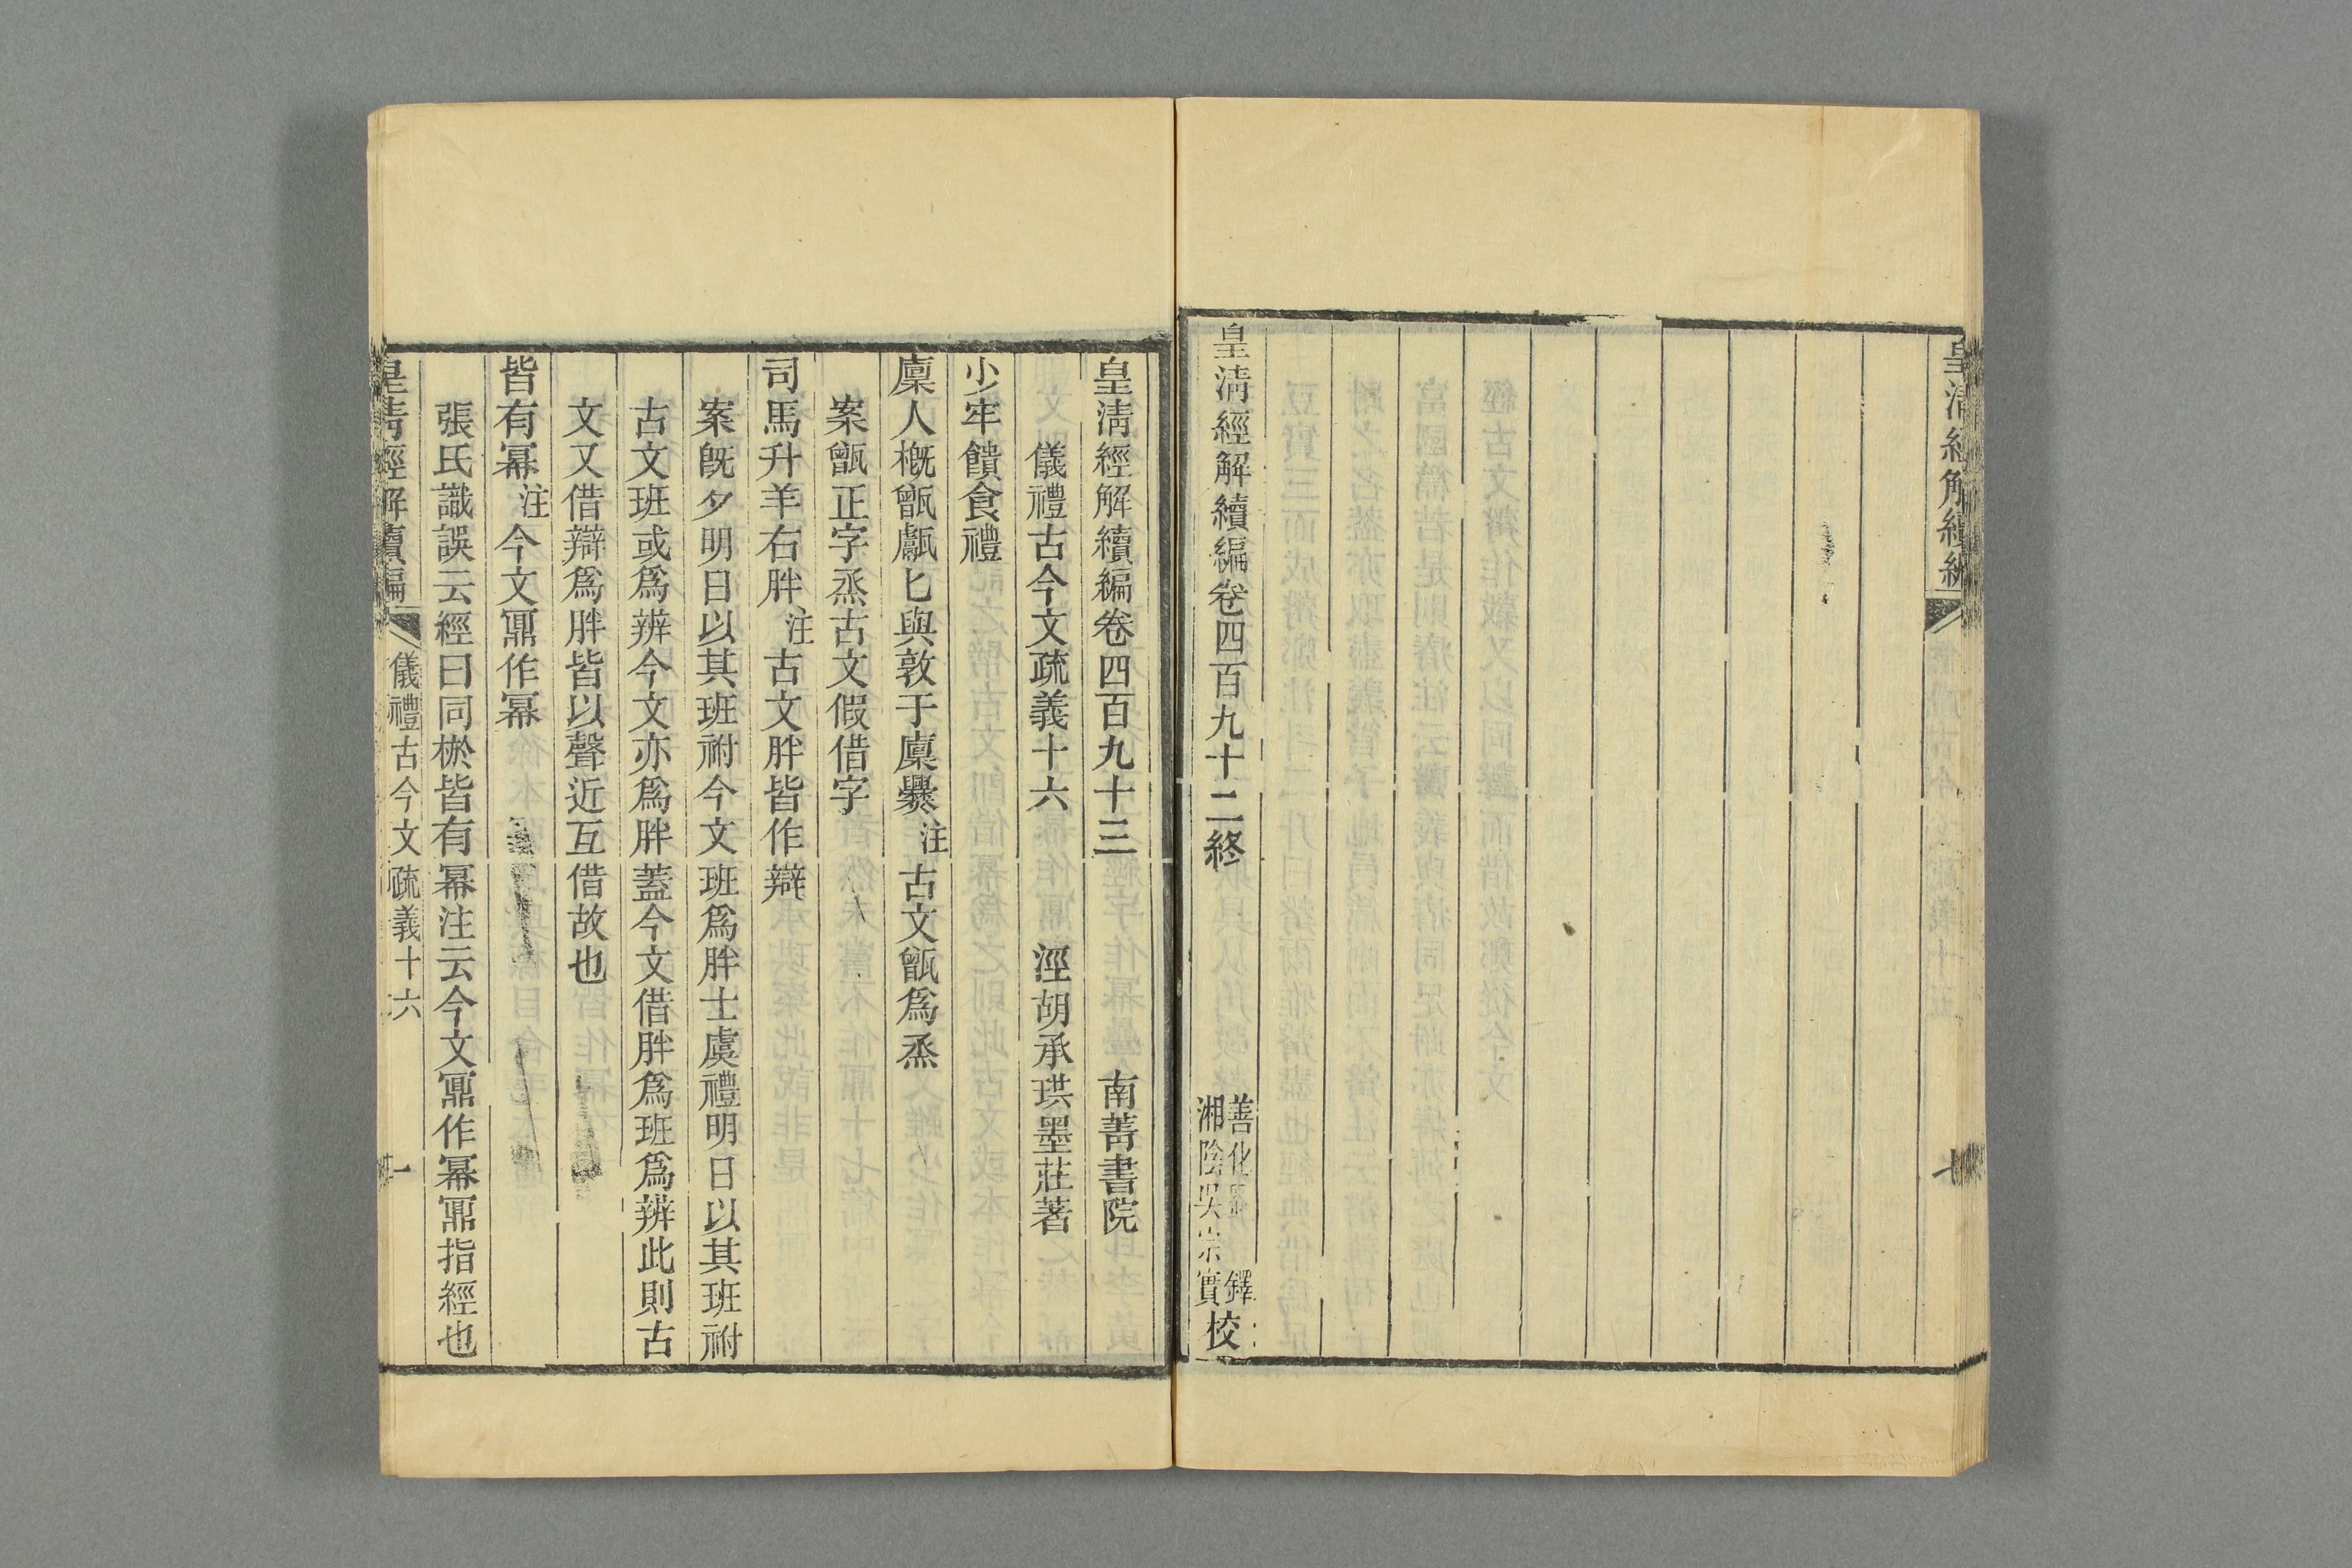 皇清經解續編
七
皇清經解續編卷四百九十二終
善化
鐸
湘陰吳宗實
校
皇清經解續編卷四百九十三 南菁書院
儀禮古今文疏義十六 涇胡承珙墨莊著
少牢饋食禮
廩人概甑甗匕與敦于廩爨注古文甑爲烝
案甑正字烝古文假借字
司馬升羊右胖注古文胖皆作辯
案既夕明日以其班祔今文班爲胖士虞禮明日以其班祔
古文班或爲辨今文亦爲胖蓋今文借胖爲班爲辨此則古
文又借辯爲胖皆以聲近互借故也
皆有冪注今文鼏作冪
張氏識誤云經曰同棜皆有冪注云今文鼏作冪鼏指經也
皇清經解續編 儀禮古今文疏義十六 一